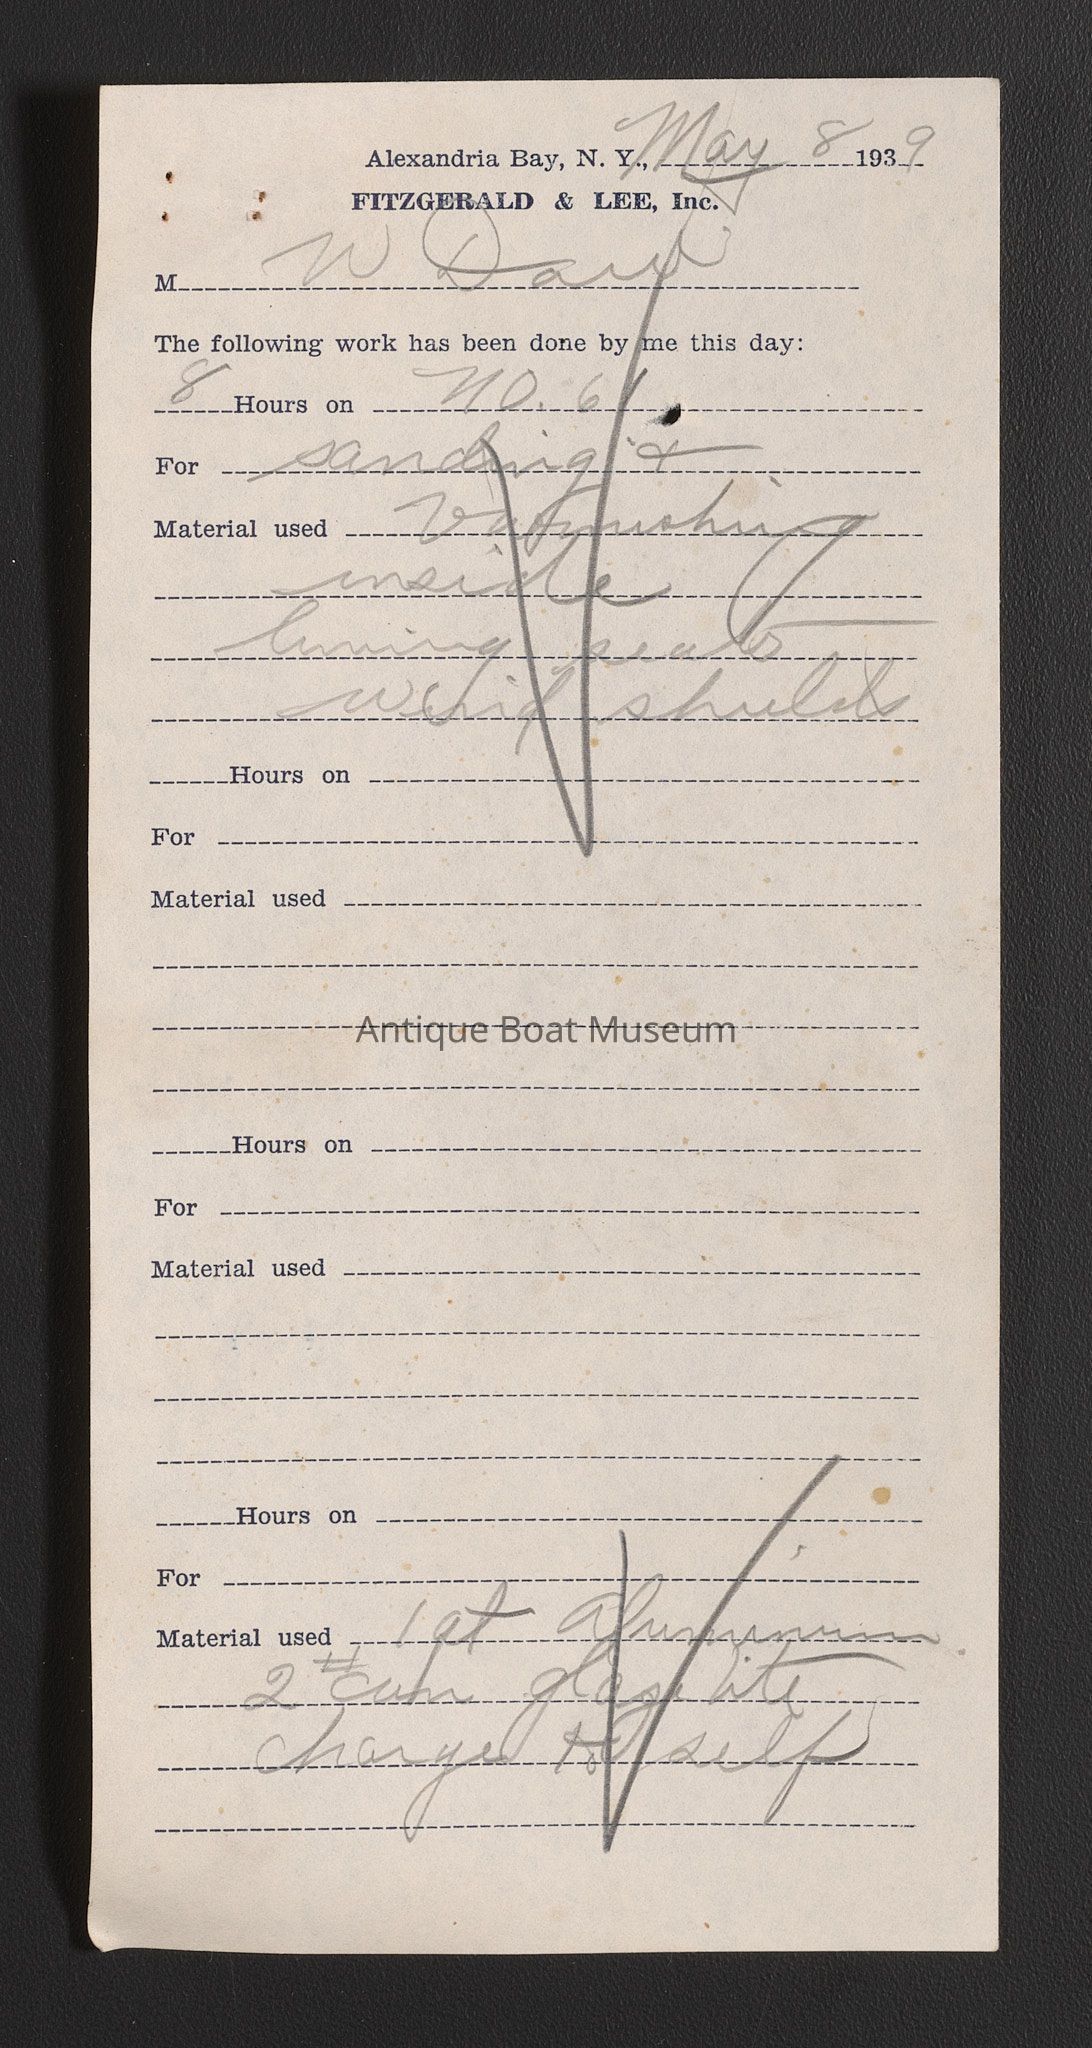 Alexandria Bay, N. Y., May 8 1939
FITZGERALD & LEE, Inc.
M W
The following work has been done by me this day:
8 Hours on No. 61
For sanding +
Material used Varnishing
inside
lining seats
wind shields
Hours on
For
Material used
Antique Boat Museum
Hours on
For
Material used
Hours on
For
Material used 1 qt Aluminum
2 # can
charge to self